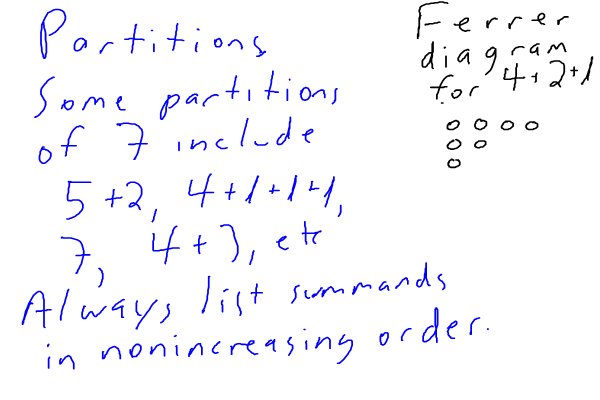 Partitions
Some partitions
of 7 include
5+2, 4+1+1+1,
7, 4+3, etc
Always list summands
in nonincreasing order.
Ferrer
diagram
for 4+2+1